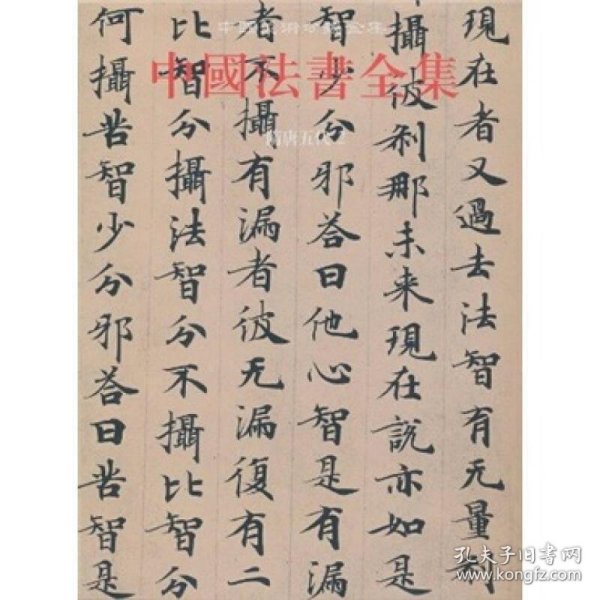 中國美術分類全集
中國法書全集
隋唐五代 2
現在者又過去法智有无量刹
攝彼刹那未来現在說亦如是
智少分邪荅曰他心智是有漏
者不攝有漏者彼无漏復有二
比智分攝法智分不攝比智分
何攝苦智少分邪荅曰苦智是
孔夫子旧书网
www.kongfz.com